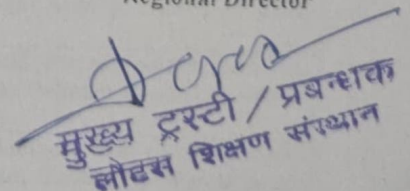 Regional Director
मुख्य ट्रस्टी / प्रबन्धक
लोटस शिक्षण संस्थान